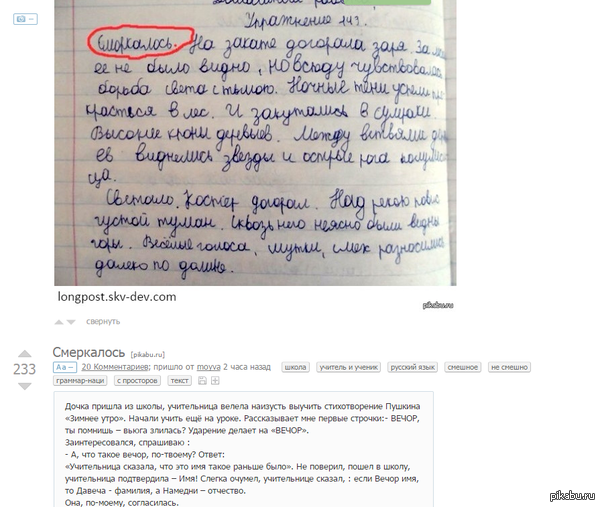 Упражнение 243.
Сморкалось. На закате догорала заря. За
ее не было видно, но всюду чувствовалась
борьба света с тьмою. Ночные тени успели
красться в лес. И закутались в сумраки
Высокие кроны деревьев. Между ветвями
ев виднелись звезды и острые рога полумеся
ца.
Светало. Костёр догорал. Над рекою повис
густой туман. Сквозь него неясно были видны
горы. Весёлые голоса, шутки, смех разносились
далеко по долине.
pikabu.ru
longpost.skv-dev.com
свернуть
Смеркалось [pikabu.ru]
233
Aa – 20 Комментариев; пришло от moyva 2 часа назад школа учитель и ученик русский язык смешное не смешно
граммар-наци с просторов текст
Дочка пришла из школы, учительница велела наизусть выучить стихотворение Пушкина
«Зимнее утро». Начали учить ещё на уроке. Рассказывает мне первые строчки:- ВЕЧОР,
ты помнишь – вьюга злилась? Ударение делает на «ВЕЧОР».
Заинтересовался, спрашиваю :
- А, что такое вечор, по-твоему? Ответ:
«Учительница сказала, что это имя такое раньше было». Не поверил, пошел в школу,
учительница подтвердила – Имя! Слегка очумел, учительнице сказал, : если Вечор имя,
то Давеча - фамилия, а Намедни – отчество.
Она, по-моему, согласилась.
pikabu.ru